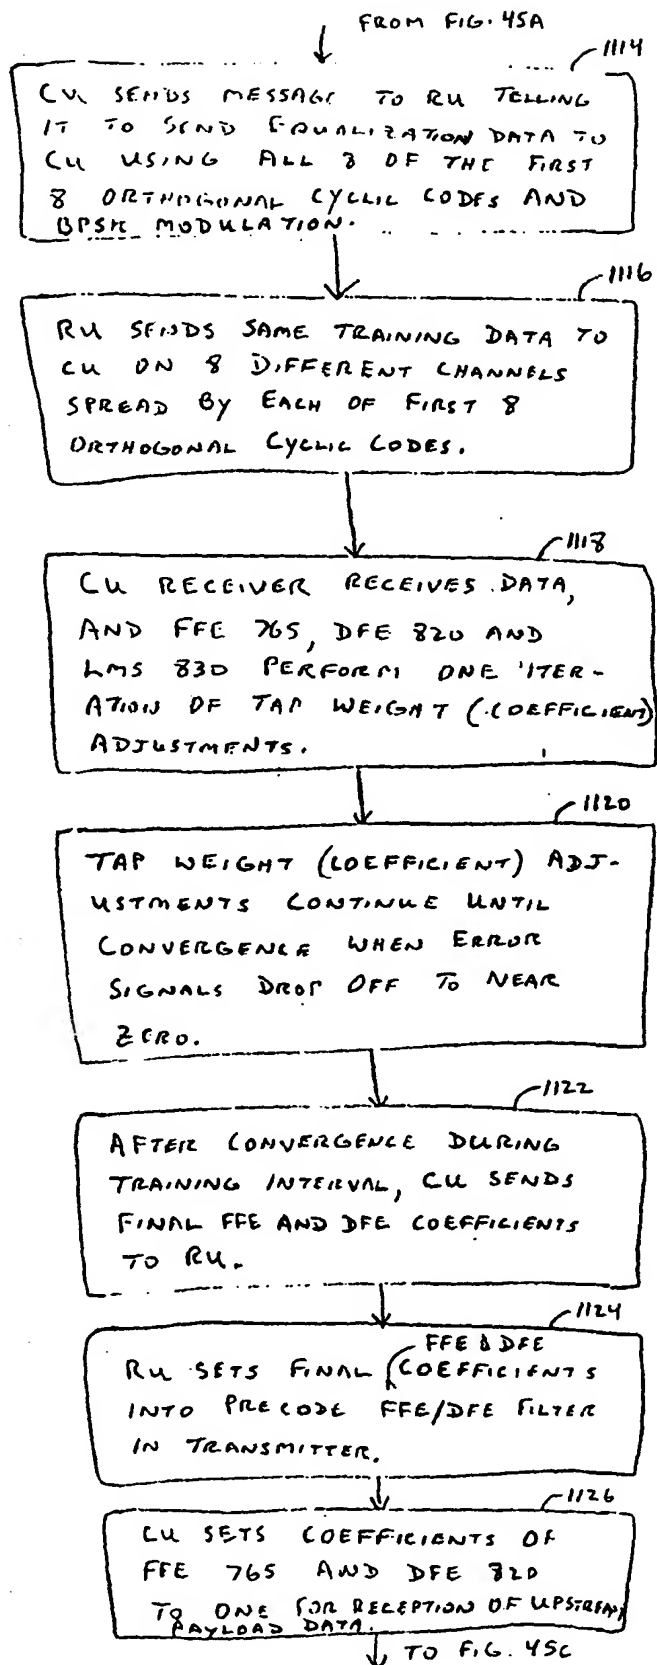 FROM FIG. 45A
1114
CU SENDS MESSAGE TO RU TELLING
IT TO SEND EQUALIZATION DATA TO
CU USING ALL 8 OF THE FIRST
8 ORTHOGONAL CYCLIC CODES AND
BPSK MODULATION.
1116
RU SENDS SAME TRAINING DATA TO
CU ON 8 DIFFERENT CHANNELS
SPREAD BY EACH OF FIRST 8
ORTHOGONAL CYCLIC CODES.
1118
CU RECEIVER RECEIVES DATA,
AND FFE 765, DFE 820 AND
LMS 830 PERFORM ONE ITER-
ATION OF TAP WEIGHT (COEFFICIENT)
ADJUSTMENTS.
1120
TAP WEIGHT (COEFFICIENT) ADJ-
USTMENTS CONTINUE UNTIL
CONVERGENCE WHEN ERROR
SIGNALS DROP OFF TO NEAR
ZERO.
1122
AFTER CONVERGENCE DURING
TRAINING INTERVAL, CU SENDS
FINAL FFE AND DFE COEFFICIENTS
TO RU.
1124
FFE & DFE
RU SETS FINAL COEFFICIENTS
INTO PRECODE FFE/DFE FILTER
IN TRANSMITTER.
1126
CU SETS COEFFICIENTS OF
FFE 765 AND DFE 820
TO ONE FOR RECEPTION OF UPSTREAM
PAYLOAD DATA.
TO FIG. 45C